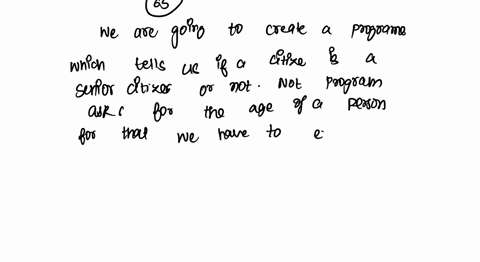 65
We are going to create a programe
which tells us if a citize is a
senior citizes or not. Not program
asks for the age of a person
for that we have to e